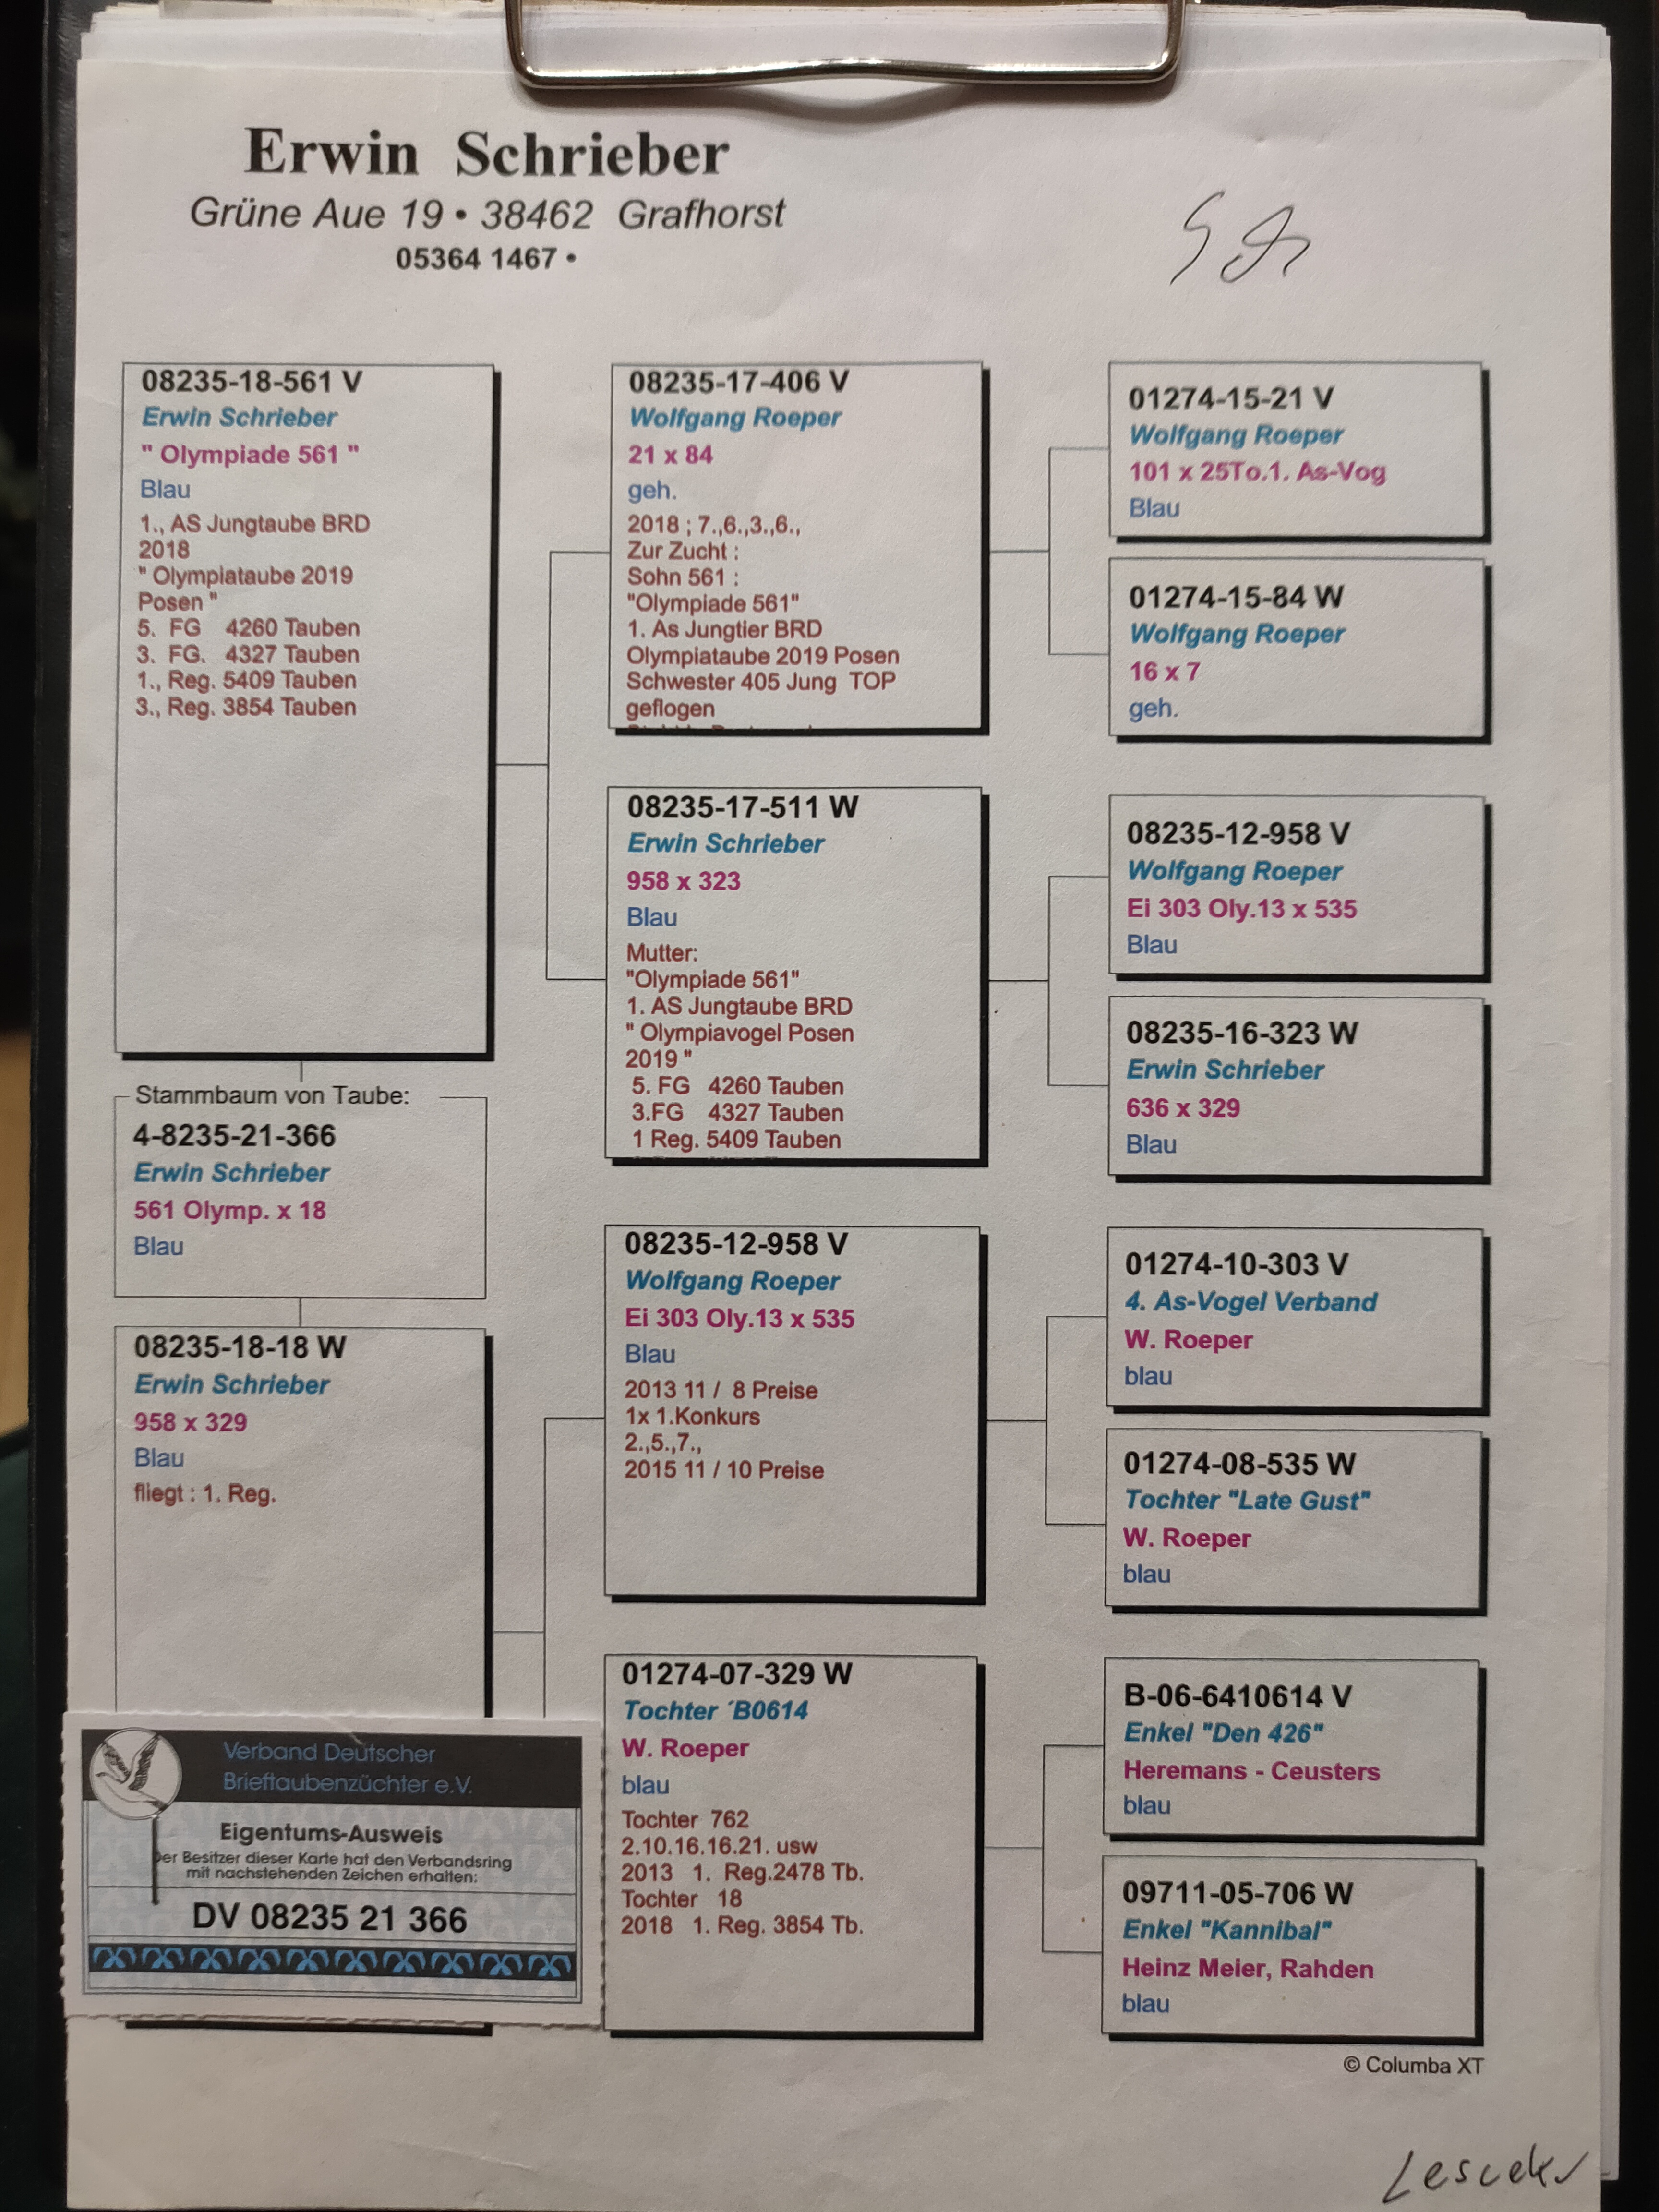 Erwin Schrieber
Grüne Aue 19 • 38462 Grafhorst
05364 1467 •
08235-18-561 V
Erwin Schrieber
" Olympiade 561 "
Blau
1., AS Jungtaube BRD
2018
" Olympiataube 2019
Posen "
5. FG 4260 Tauben
3. FG. 4327 Tauben
1., Reg. 5409 Tauben
3., Reg. 3854 Tauben
Stammbaum von Taube:
4-8235-21-366
Erwin Schrieber
561 Olymp. x 18
Blau
08235-18-18 W
Erwin Schrieber
958 x 329
Blau
fliegt : 1. Reg.
Verband Deutscher
Brieftaubenzüchter e.V.
Eigentums-Ausweis
Der Besitzer dieser Karte hat den Verbandsring
mit nachstehenden Zeichen erhalten:
DV 08235 21 366
08235-17-406 V
Wolfgang Roeper
21 x 84
geh.
2018 ; 7.,6.,3.,6.,
Zur Zucht :
Sohn 561 :
"Olympiade 561"
1. As Jungtier BRD
Olympiataube 2019 Posen
Schwester 405 Jung TOP
geflogen
08235-17-511 W
Erwin Schrieber
958 x 323
Blau
Mutter:
"Olympiade 561"
1. AS Jungtaube BRD
" Olympiavogel Posen
2019 "
5. FG 4260 Tauben
3.FG 4327 Tauben
1 Reg. 5409 Tauben
08235-12-958 V
Wolfgang Roeper
Ei 303 Oly.13 x 535
Blau
2013 11 / 8 Preise
1x 1.Konkurs
2.,5.,7.,
2015 11 / 10 Preise
01274-07-329 W
Tochter ´B0614
W. Roeper
blau
Tochter 762
2.10.16.16.21. usw
2013 1. Reg.2478 Tb.
Tochter 18
2018 1. Reg. 3854 Tb.
01274-15-21 V
Wolfgang Roeper
101 x 25To.1. As-Vog
Blau
01274-15-84 W
Wolfgang Roeper
16 x 7
geh.
08235-12-958 V
Wolfgang Roeper
Ei 303 Oly.13 x 535
Blau
08235-16-323 W
Erwin Schrieber
636 x 329
Blau
01274-10-303 V
4. As-Vogel Verband
W. Roeper
blau
01274-08-535 W
Tochter "Late Gust"
W. Roeper
blau
B-06-6410614 V
Enkel "Den 426"
Heremans - Ceusters
blau
09711-05-706 W
Enkel "Kannibal"
Heinz Meier, Rahden
blau
© Columba XT